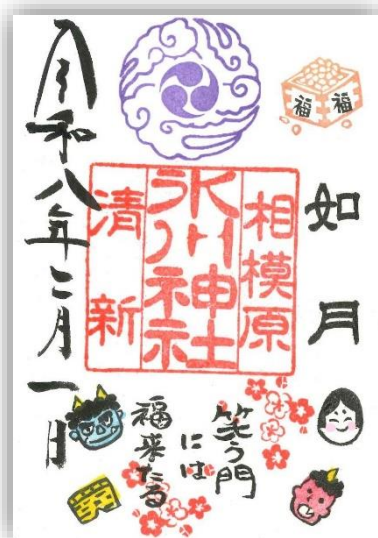 如月
福 福
相模原
氷川神社
清新
令和八年二月一日
笑う門
には
福来たる